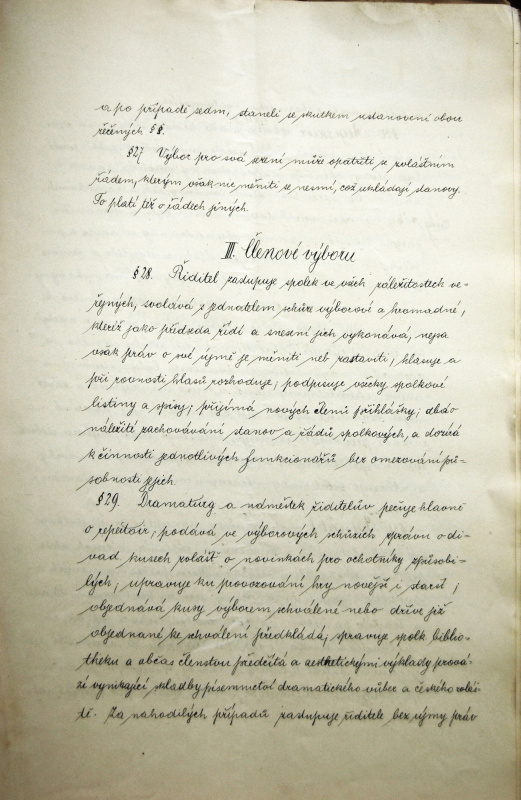 a po případě sedm, staneli se skutkem ustanovení obou
řečených §§.
§27. Výbor pro svá řízení může opatřiti se zvláštním
řádem, kterým však nic měniti se nesmí, což ukládají stanovy.
To platí též o řádech jiných.
III. Členové výboru
§28. Řiditel zastupuje spolek ve všech záležitostech ve-
řejných, svolává s jednatelem schůze výborové a hromadné,
kteréž jako předseda řídí a snesení jich vykonává, nejsa
však práv o své újmě je měniti neb zastaviti; hlasuje a
při rovnosti hlasů rozhoduje; podpisuje všecky spolkové
listiny a spisy; přijímá nových členů přihlášky; dbá o
náležité zachovávání stanov a řádů spolkových, a dozírá
k činnosti jednotlivých funkcionářů bez omezování pů-
sobnosti jejich.
§29. Dramaturg a náměstek řiditelův pečuje hlavně
o repertoir; podává ve výborových schůzích zprávu o di-
vad. kusech zvlášť o novinkách pro ochotníky způsobi-
lých; upravuje ku provozování hry novější i starší;
objednává kusy výborem schválené nebo dříve již
objednané ke schválení předkládá, spravuje spolk. biblio-
theku a občas členstvu předčítá a aesthetickými výklady prová-
zí vynikající skladby písemnictví dramatického vůbec a českého zvlá-
ště. Za nahodilých případů zastupuje řiditele bez újmy práv